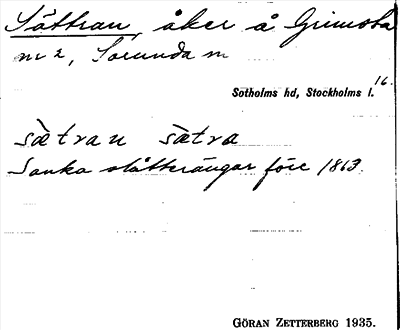 Sättran, åker å Grimsta
nr 2, Sorunda sn
16.
Sotholms hd, Stockholms l.
sætran sætra
Sanka slåtterängar före 1863.
GÖRAN ZETTERBERG 1935.